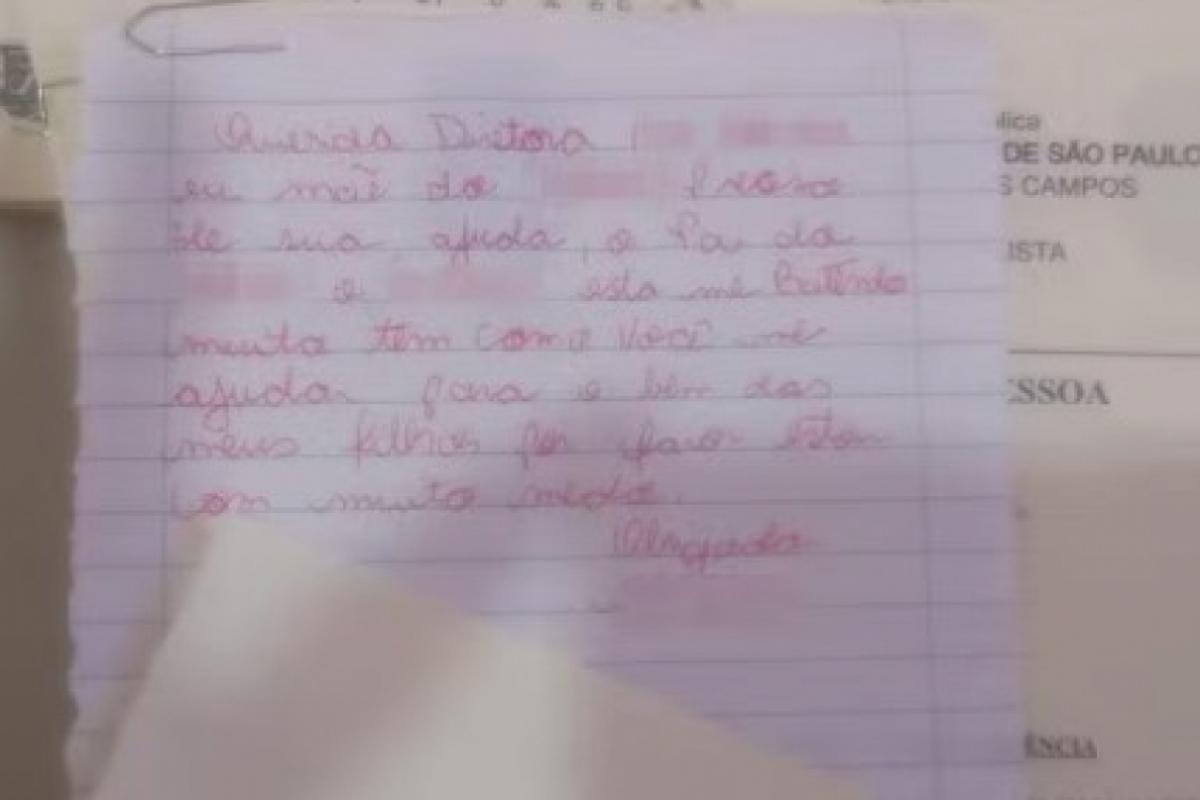 Querida Diretora
eu mãe do Preciso
de sua ajuda, o Pai da
e esta me Batendo
muito tem como você me
ajudar para o bem dos
meus filhos por favor estou
com muito medo.
Obrigada
lica
DE SÃO PAULO
S CAMPOS
ISTA
ESSOA
ÊNCIA